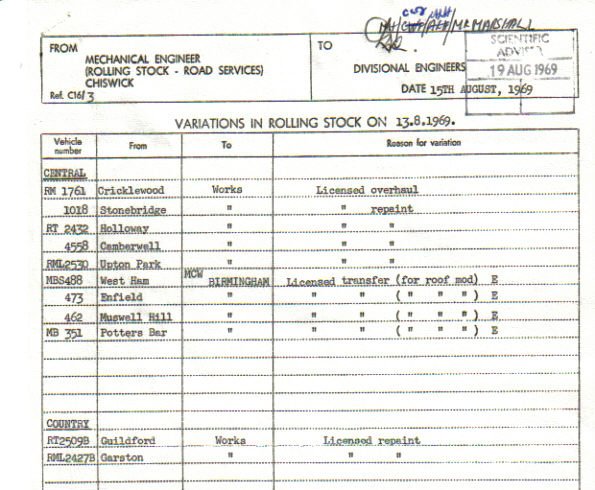 CWS/AHH
MH/CWF/ALF/MR MARSHALL
FROM
MECHANICAL ENGINEER
(ROLLING STOCK - ROAD SERVICES)
CHISWICK
Ref. C16/3
TO
DIVISIONAL ENGINEERS
DATE 15TH AUGUST, 1969
SCIENTIFIC
ADVISER
19 AUG 1969
VARIATIONS IN ROLLING STOCK ON 13.8.1969.
Vehicle number From To Reason for variation
CENTRAL
RM 1761 Cricklewood Works Licensed overhaul
1018 Stonebridge " " repaint
RT 2432 Holloway " " "
4558 Camberwell " " "
RML2530 Upton Park " " "
MBS488 West Ham MCW BIRMINGHAM Licensed transfer (for roof mod) E
473 Enfield " " " ( " " " ) E
462 Muswell Hill " " " ( " " " ) E
MB 351 Potters Bar " " " ( " " " ) E
COUNTRY
RT2509B Guildford Works Licensed repaint
RML2427B Garston " " "